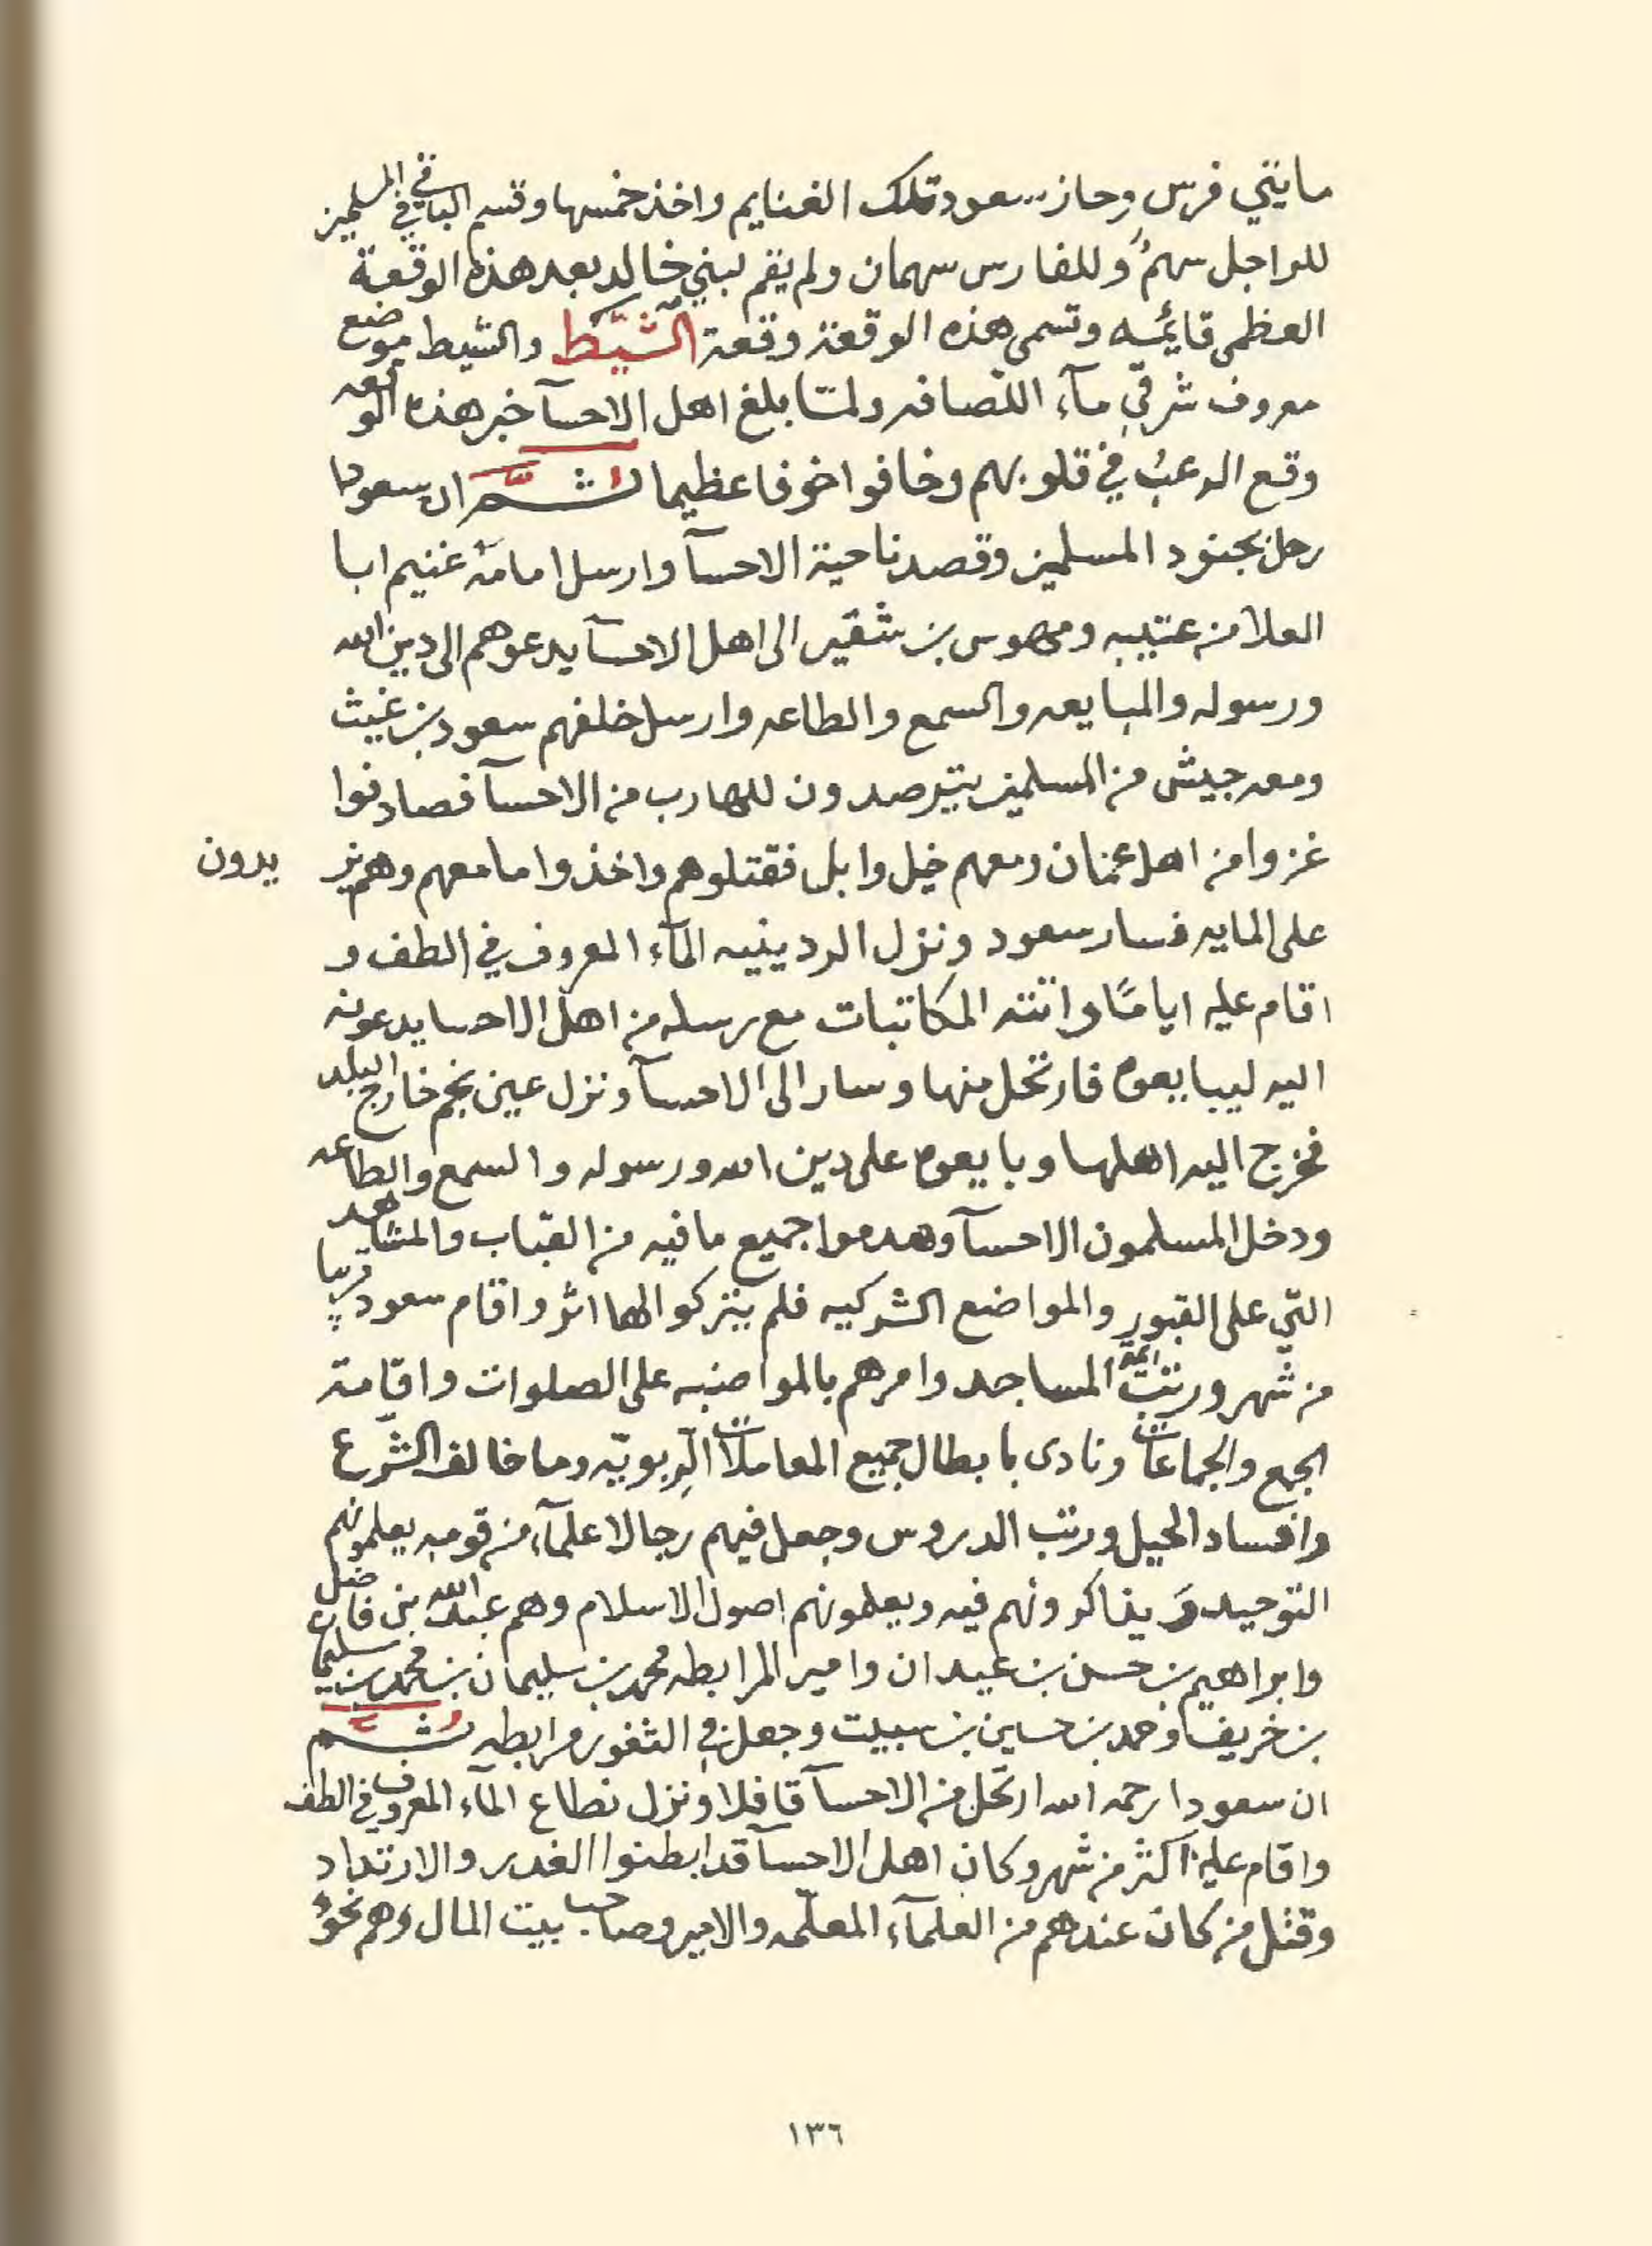 مايتي فرس وحاز سعود تلك الغنايم واخذ خمسها وقسم الباقي في المسلمين
للراجل سهمٌ وللفارس سهمان ولم يقم لبني خالد بعد هذه الوقعة
العظمى قايمُه وتسمى هذه الوقعة وقعة الشَّيِّط والشيط موضع
معروف شرقي مآء اللصافه ولما بلغ اهل الاحسآ خبر هذه الوقعه
وقع الرعبُ في قلوبهم وخافوا خوفا عظيما ثم ان سعودا
رحل بجنود المسلمين وقصد ناحية الاحسآ وارسل امامه غنيم ابا
العلا من عتيبه ومهوس بن شقير الى اهل الاحسآ يدعوهم الى دين الله
ورسوله والمبايعه والسمع والطاعه وارسل خلفهم سعود بن غيث
ومعه جيش من المسلمين يترصدون للهارب من الاحسآ فصادفوا
غزوا من اهل عمان ومعهم خيل وابل فقتلوهم واخذوا ما معهم وهم يز يدرون
على المايه فسار سعود ونزل الردينيه المآء المعروف في الطف و
اقام عليه ايامًا واتته المكاتبات مع رسله من اهل الاحسا يدعونه
اليه ليبايعوه فارتحل منها وسار الى الاحسآ ونزل عين نجم خارج البلد
فخرج اليه اهلها وبايعوه على دين الله ورسوله والسمع والطاعه
ودخل المسلمون الاحسآ وهدموا جميع ما فيه من القباب والمشاهد
التي على القبور والمواضع الشركيه فلم يتركوا لها اثر واقام سعود قريبا
من شهر ورتب ائمة المساجد وامرهم بالمواضبه على الصلوات واقامة
الجمع والجماعات ونادى بابطال جميع المعاملات الرِبويّه وما خالف الشرع
وافساد الحيل ورتب الدروس وجعل فيهم رجالا علمآء من قومه يعلمونهم
التوحيد ويذاكرونهم فيه ويعلمونهم اصول الاسلام وهم عبدالله بن فاضل
وابراهيم بن حسن بن عيدان وامير المرابطه محمد بن سليمان بن محمد بن سليمان
بن خريف وحمد بن حسين بن سبيت وجعل في الثغور مرابطه ثم
ان سعودا رحمه الله ارتحل من الاحسآ قافلا ونزل نطاع المآء المعروف في الطف
واقام عليه اكثر من شهر وكان اهل الاحسآ قد ابطنوا الغدر والارتداد
وقتل من كان عندهم من العلمآء المعلّمه والامير وصاحب بيت المال وهم نحوُ
١٣٦